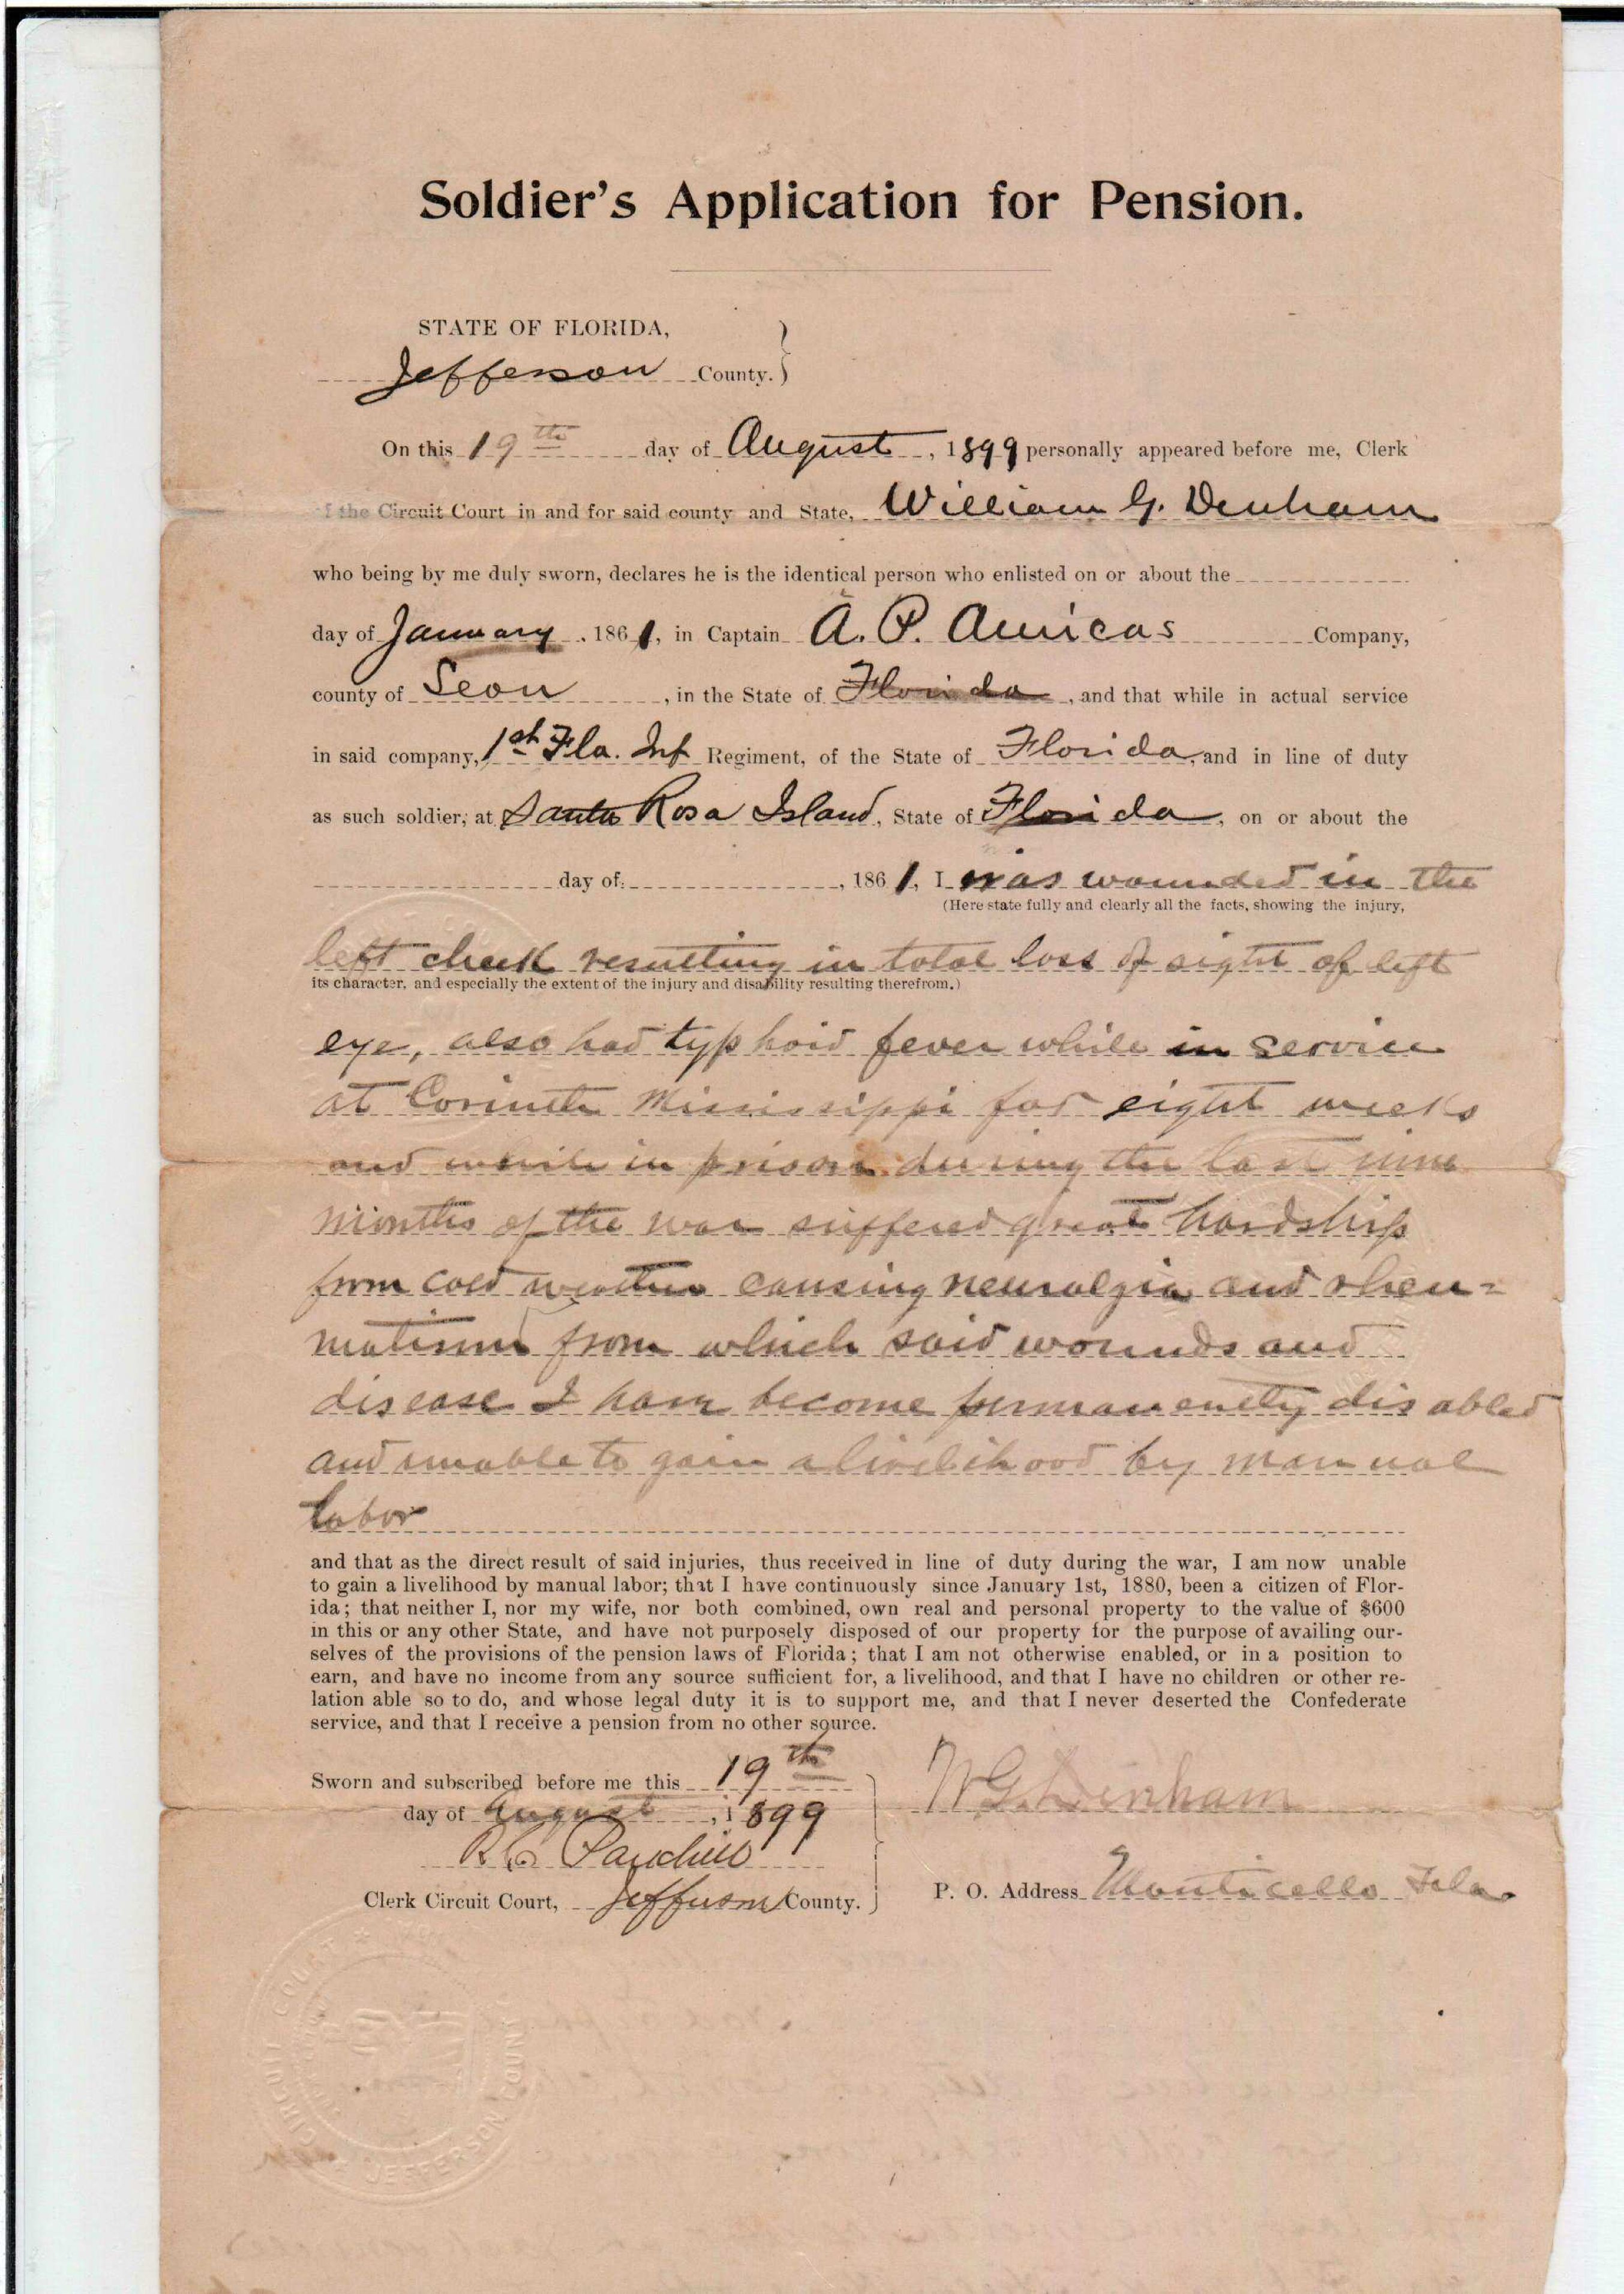 Soldier's Application for Pension.
STATE OF FLORIDA,
Jefferson County.
On this 19th day of August, 1899 personally appeared before me, Clerk
of the Circuit Court in and for said county and State, William G. Denham
who being by me duly sworn, declares he is the identical person who enlisted on or about the
day of January, 1861, in Captain A. P. Company,
county of Leon, in the State of Florida, and that while in actual service
in said company, 1st Fla. Inf Regiment, of the State of Florida, and in line of duty
as such soldier, at Santa Rosa Island, State of Florida, on or about the
day of, 1861, I was wounded in the
(Here state fully and clearly all the facts, showing the injury,
left cheek resulting in total loss of sight of left
its character, and especially the extent of the injury and disability resulting therefrom.)
eye, also had typhoid fever while in service
at Corinth Mississippi for eight weeks
and while in prison during the last nine
months of the war suffered great hardship
from cold weather causing neuralgia and rheu=
matism from which said wounds and
disease I have become permanently disabled
and unable to gain a livelihood by manual
labor
and that as the direct result of said injuries, thus received in line of duty during the war, I am now unable
to gain a livelihood by manual labor; that I have continuously since January 1st, 1880, been a citizen of Flor-
ida; that neither I, nor my wife, nor both combined, own real and personal property to the value of $600
in this or any other State, and have not purposely disposed of our property for the purpose of availing our-
selves of the provisions of the pension laws of Florida; that I am not otherwise enabled, or in a position to
earn, and have no income from any source sufficient for, a livelihood, and that I have no children or other re-
lation able so to do, and whose legal duty it is to support me, and that I never deserted the Confederate
service, and that I receive a pension from no other source.
Sworn and subscribed before me this 19th
day of August, 1899
W G. Denham
Clerk Circuit Court, Jefferson County.
P. O. Address Monticello Fla.
CIRCUIT COURT * JEFFERSON COUNTY